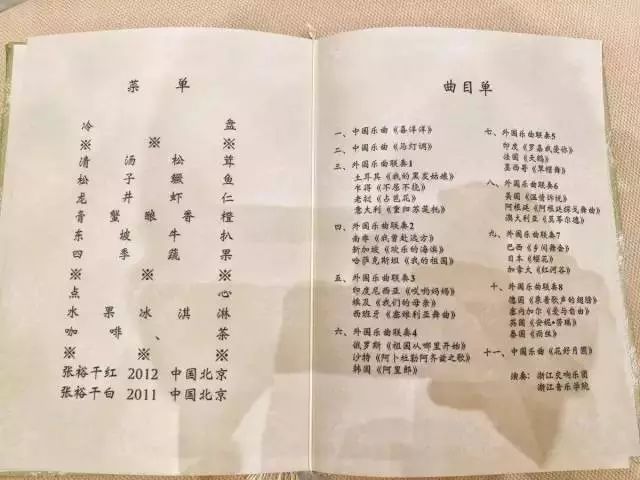 菜单
冷盘
※※
清汤松茸
松子鳜鱼
龙井虾仁
膏蟹酿香橙
东坡牛扒
四季蔬果
※※※
点心
水果冰淇淋
咖啡、茶
※※※
张裕干红 2012 中国北京
张裕干白 2011 中国北京
曲目单
一、中国乐曲《喜洋洋》
二、中国乐曲《马灯调》
三、外国乐曲联奏1
土耳其《我的黑发姑娘》
乍得《不屈不挠》
老挝《占芭花》
意大利《重归苏莲托》
四、外国乐曲联奏2
南非《我曾赴远方》
新加坡《欢乐的海滨》
哈萨克斯坦《我的祖国》
五、外国乐曲联奏3
印度尼西亚《哎哟妈妈》
埃及《我们的母亲》
西班牙《塞维利亚舞曲》
六、外国乐曲联奏4
俄罗斯《祖国从哪里开始》
沙特《阿卜杜勒阿齐兹之歌》
韩国《阿里郎》
七、外国乐曲联奏5
印度《罗嘉我爱你》
法国《天鹅》
墨西哥《草帽舞》
八、外国乐曲联奏6
美国《温情诉说》
阿根廷《阿根廷探戈舞曲》
澳大利亚《莫蒂尔德》
九、外国乐曲联奏7
巴西《乡间舞会》
日本《樱花》
加拿大《红河谷》
十、外国乐曲联奏8
德国《乘着歌声的翅膀》
塞内加尔《爱与自由》
英国《安妮•劳瑞》
泰国《雨丝》
十一、中国乐曲《花好月圆》
演奏：浙江交响乐团
浙江音乐学院